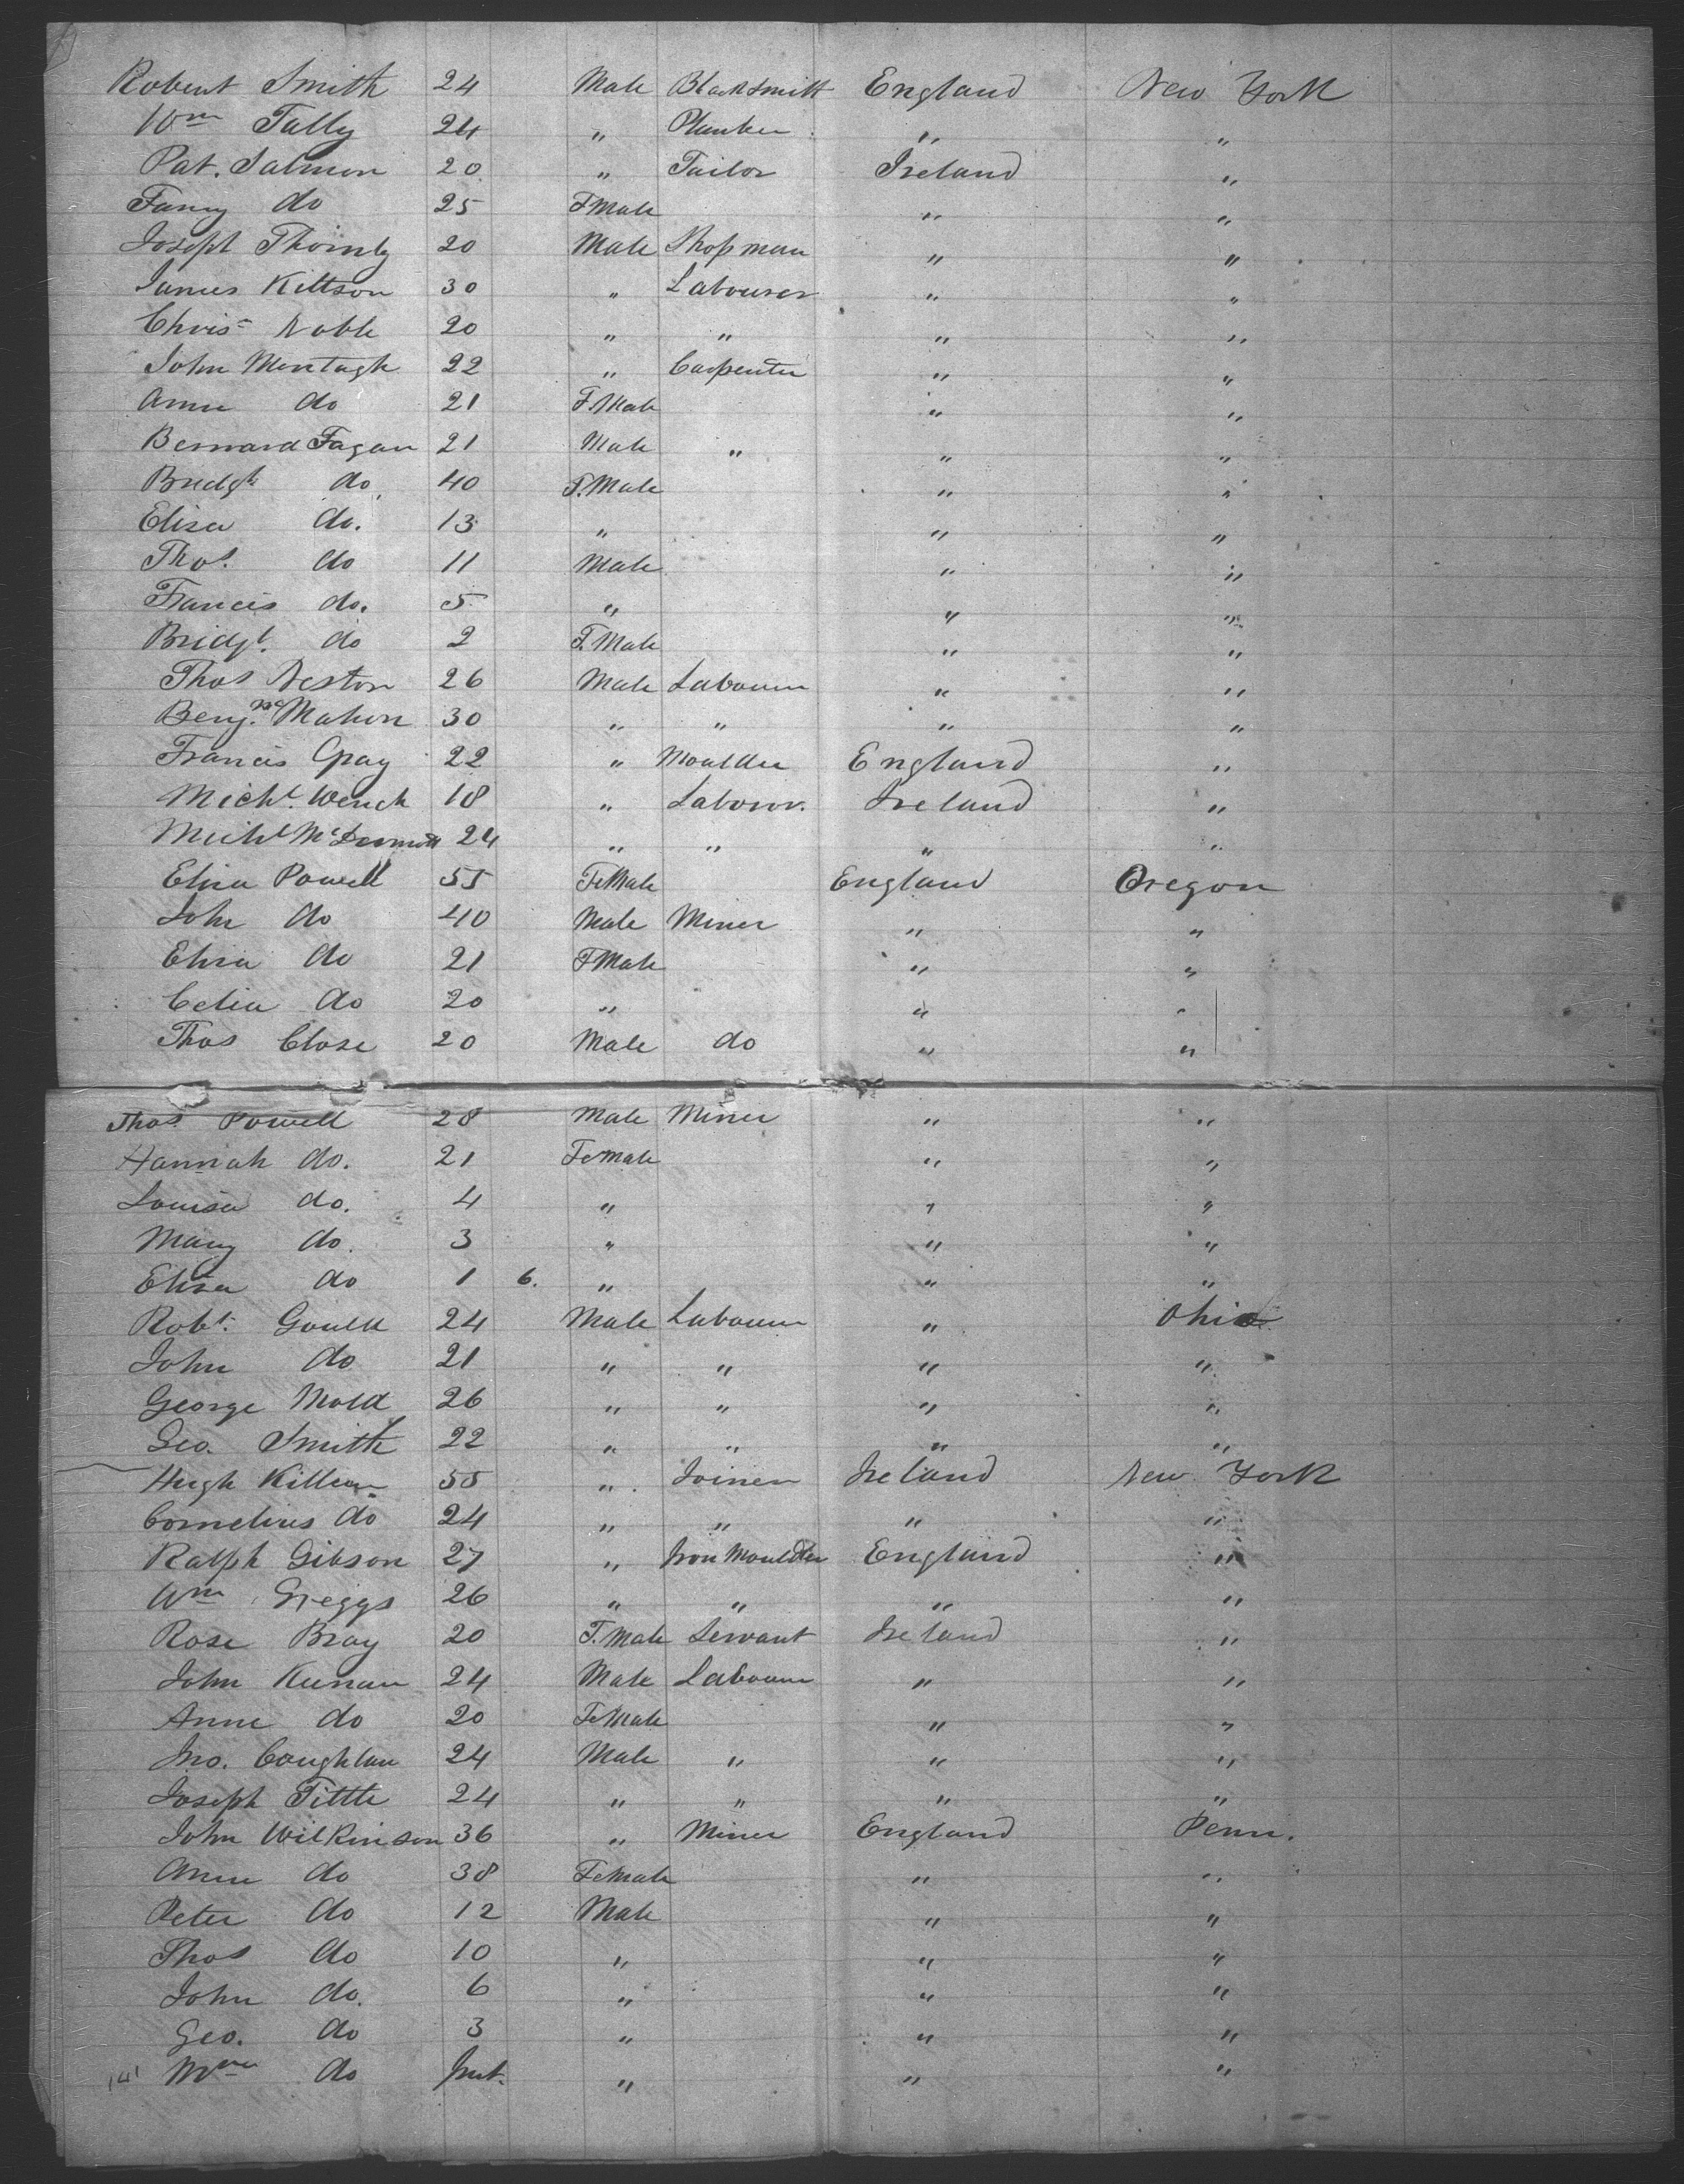 Robert Smith 24 Male Blacksmith England New York
Wm Tully 24 " "  "
Pat. Salmon 20 " Tailor Ireland "
Fanny do 25 FMale " "
Joseph Thornly 20 Male Shopman " "
James Kittson 30 " Labourer " "
Chris Noble 20 " " " "
John Montagh 22 " Carpenter " "
Anne do 21 F.Male " "
Bernard Fagan 21 Male " " "
Bridgt do 40 F.Male " "
Eliza do. 13 " " "
Thos. do 11 Male " "
Francis do. 5 " " "
Bridgt. do 2 F.Male " "
Thos Neston 26 Male Labourer " "
Benj. McMahon 30 " " " "
Francis Gray 22 " Moulder England "
Michl. Wench 18 " Labour. Ireland "
Michl McDermott 24 " " " "
Eliza Powell 55 FeMale England Oregon
John do 40 Male Miner " "
Eliza do 21 FMale " "
Celia do 20 " " "
Thos Close 20 Male do " "
Thos Powell 28 Male Miner " "
Hannah do. 21 Female " "
Louisa do. 4 " " "
Mary do. 3 " " "
Eliza do 1 6. " " "
Robt. Gould 24 Male Labourer " Ohio
John do 21 " " " "
George Mold 26 " " " "
Geo. Smith 22 " " " "
Hugh Killean 55 " Joiner Ireland New York
Cornelius do 24 " " " "
Ralph Gibson 27 " Iron Moulder England "
Wm Greggs 26 " " " "
Rose Bray 20 F.Male Servant Ireland "
John Keenan 24 Male Labourer " "
Anne do 20 FeMale " "
Jno. Coughlan 24 Male " " "
Joseph Tittle 24 " " " "
John Wilkinson 36 " Miner England Penn.
Anne do 38 FeMale " "
Peter do 12 Male " "
Thos do 10 " " "
John do. 6 " " "
Geo. do 3 " " "
141 do Inft. " " "